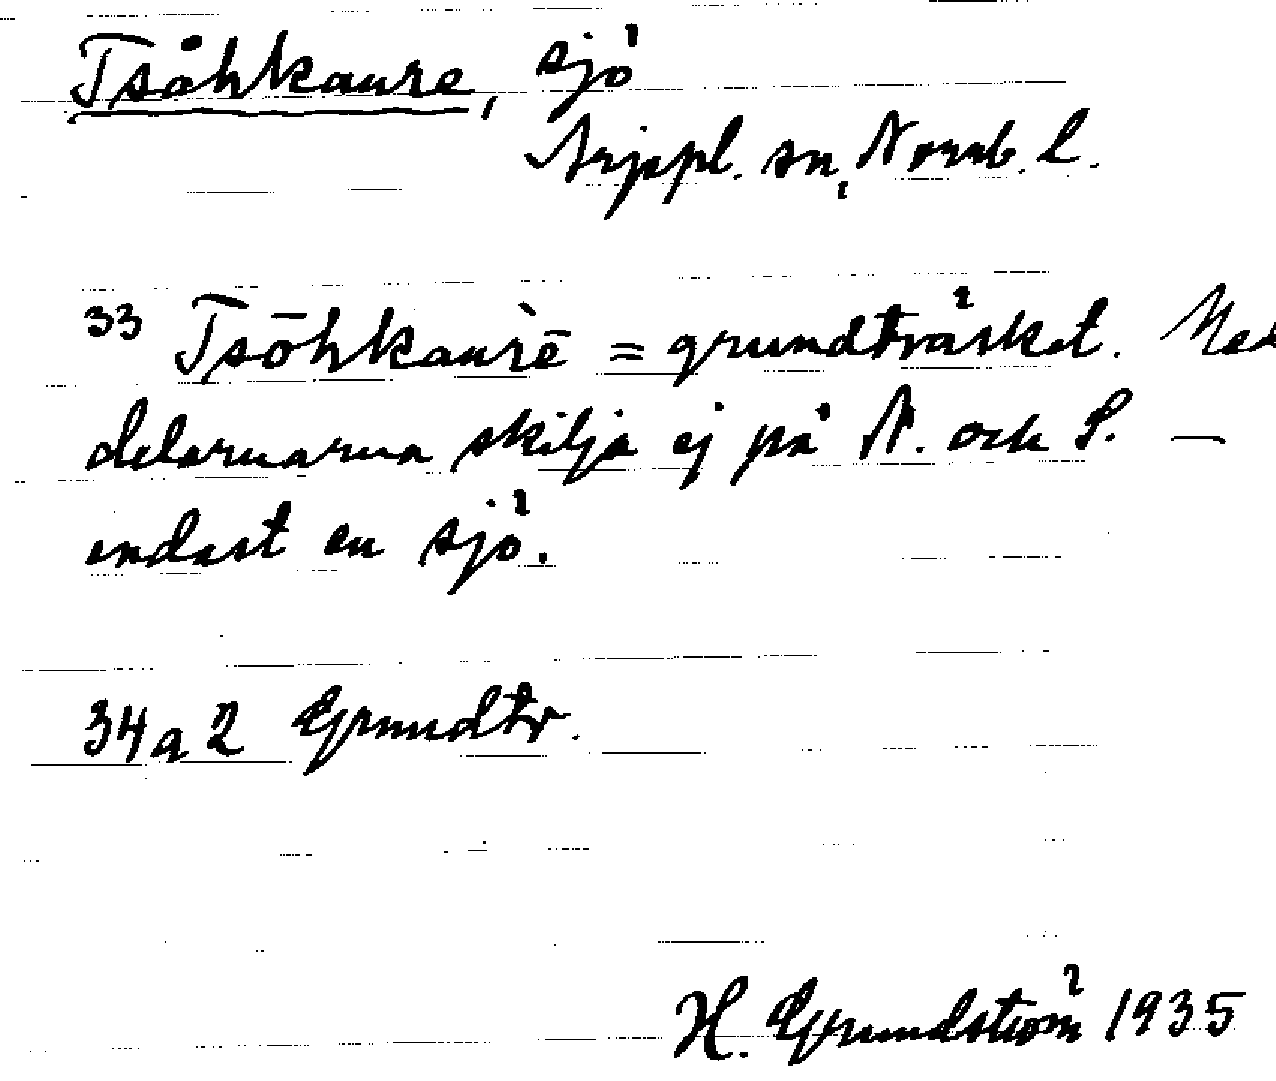 Tsåhkaure, sjö
Arjepl. sn, Norrb. l.
33 Tsōhkaùrē = grundträsket. Med
delarnarna skilja ej på N. och S. —
endast en sjö.
34 a 2 Grundtr.
H. Grundström 1935